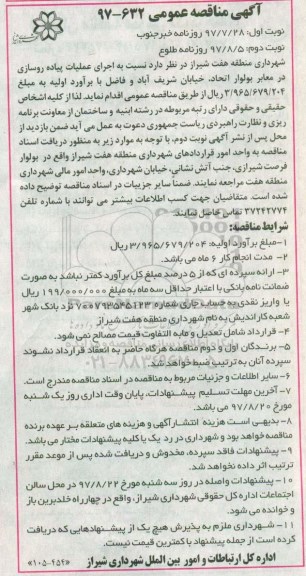 آگهی مناقصه عمومی ۶۳۲-۹۷
نوبت اول: ۹۷/۷/۲۸ روزنامه خبرجنوب
نوبت دوم: ۹۷/۸/۵ روزنامه طلوع
شهرداری منطقه هفت شیراز در نظر دارد نسبت به اجرای عملیات پیاده روسازی
در معابر بولوار اتحاد، خیابان شریف آباد و فاضل با برآورد اولیه به مبلغ
۳/۹۶۵/۶۷۹/۲۰۴ ریال از طریق مناقصه عمومی اقدام نماید. لذا از کلیه اشخاص
حقیقی و حقوقی دارای رتبه مربوطه در رشته ابنیه و ساختمان از معاونت برنامه
ریزی و نظارت راهبردی ریاست جمهوری دعوت به عمل می آید ضمن بازدید از
محل پس از نشر آگهی نوبت دوم، با توجه به موارد زیر به منظور دریافت اسناد
مناقصه به واحد امور قراردادهای شهرداری منطقه هفت شیراز واقع در بولوار
فرصت شیرازی، جنب آتش نشانی، خیابان شهرداری، واحد امور مالی شهرداری
منطقه هفت مراجعه نمایند. ضمناً سایر جزییات در اسناد مناقصه توضیح داده
شده است. متقاضیان جهت کسب اطلاعات بیشتر می توانند با شماره تلفن
۳۷۲۴۲۷۷۴ تماس حاصل نمایند.
شرایط مناقصه:
۱-مبلغ برآورد اولیه: ۳/۹۶۵/۶۷۹/۲۰۴ ریال
۲- مدت انجام کار ۶ ماه می باشد.
۳- ارائه سپرده ای که از ۵ درصد مبلغ کل برآورد کمتر نباشد به صورت
ضمانت نامه بانکی با اعتبار حداقل سه ماه به مبلغ ۱۹۹/۰۰۰/۰۰۰ ریال
یا واریز نقدی به حساب جاری شماره ۷۰۰۷۹۲۵۴۵۱۲۳ نزد بانک شهر
شعبه کاراندیش به نام شهرداری منطقه هفت شیراز
۴- قرارداد شامل تعدیل و مابه التفاوت قیمت مصالح نمی شود.
۵- برندگان اول و دوم مناقصه هرگاه حاضر به انعقاد قرارداد نشوند
سپرده آنان به ترتیب ضبط خواهد شد.
۶- سایر اطلاعات و جزییات مربوط به مناقصه در اسناد مناقصه مندرج است.
۷- آخرین مهلت تسلیم پیشنهادات، پایان وقت اداری روز یک شنبه
مورخ ۹۷/۸/۲۰ می باشد.
۸- بدیهی است هزینه انتشار آگهی و هزینه های متعلقه بر عهده برنده
مناقصه خواهد بود و شهرداری در رد یک یا کلیه پیشنهادات مختار می باشد.
۹- پیشنهادات فاقد سپرده، مخدوش و دریافت شده پس از موعد مقرر
ترتیب اثر داده نخواهد شد.
۱۰- پیشنهادات واصله در روز سه شنبه مورخ ۹۷/۸/۲۲ در محل سالن
اجتماعات اداره کل حقوقی شهرداری شیراز، واقع در چهارراه خلدبرین باز
و خوانده می شود.
۱۱- شهرداری ملزم به پذیرش هیچ یک از پیشنهادهایی که دریافت
کرده است از جمله پیشنهاد با کمترین قیمت نیست.
اداره کل ارتباطات و امور بین الملل شهرداری شیراز «۱۰۵-۴۵۴»